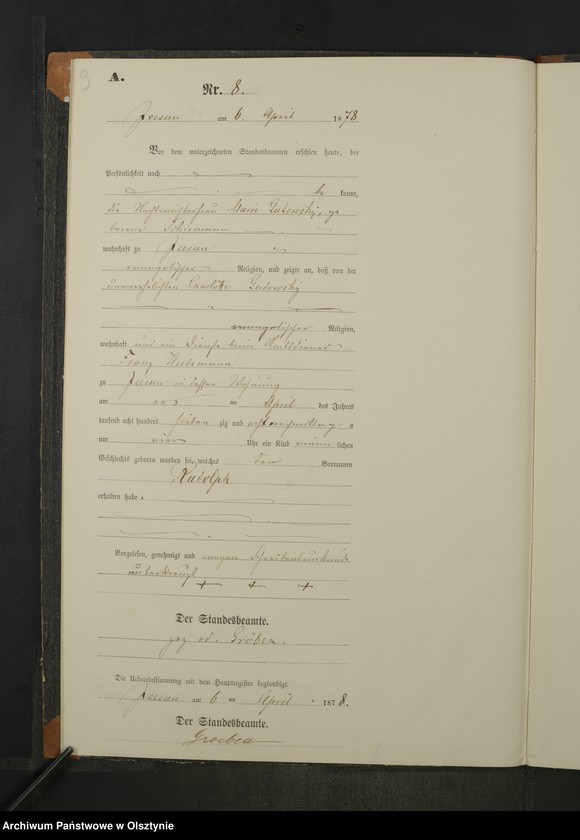 9
A.
Nr. 8.
am 6. April 1878
Vor dem unterzeichneten Standesbeamten erschien heute, der
Persönlichkeit nach
be kannt,
die Marie ge
borene
wohnhaft zu
evangelischer Religion, und zeigte an, daß von der
unverehelichten
evangelischer Religion,
wohnhaft und im Dienste beim
Franz
zu in dessen Wohnung
am April des Jahres
tausend acht hundert sieben zig und acht nachmittags
um vier Uhr ein Kind männ lichen
Geschlechts geboren worden sei, welches den Vornamen
Rudolph
erhalten habe.
Vorgelesen, genehmigt und wegen Schreibensunkunde
unterkreuzt
+ + +
Der Standesbeamte.
gez v. d. Gröben.
Die Uebereinstimmung mit dem Hauptregister beglaubigt.
am 6 ten April 1878.
Der Standesbeamte.
Groeben
Archiwum Państwowe w Olsztynie